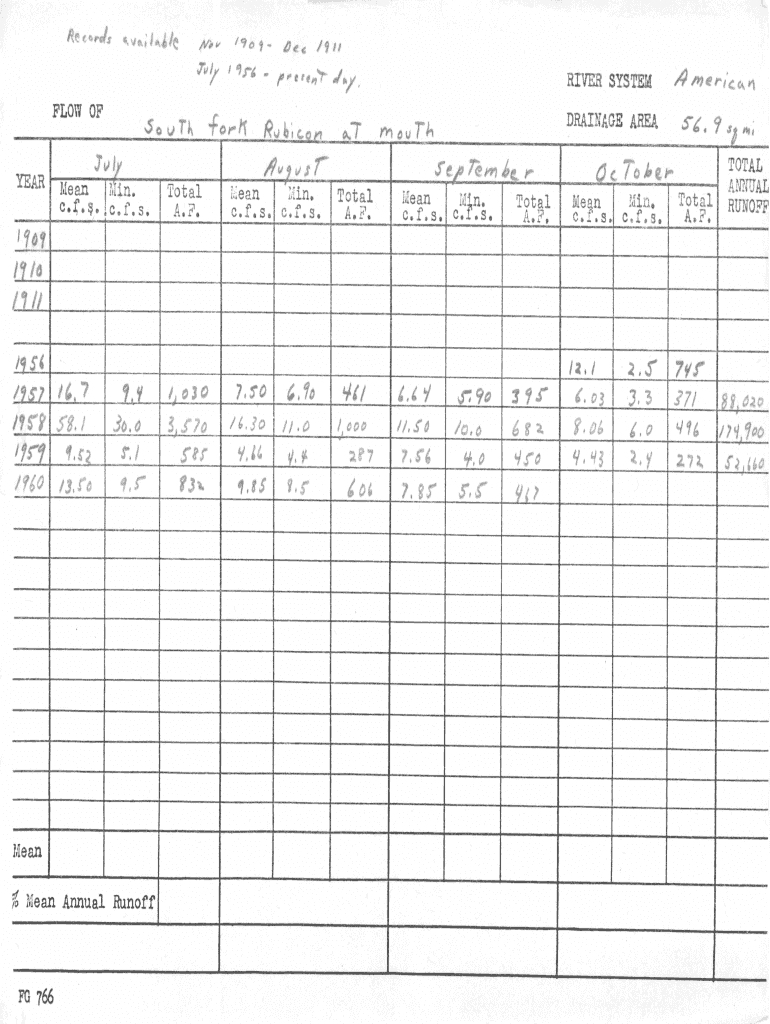 Records available Nov 1909 - Dec 1911
July 1956 - present day.
RIVER SYSTEM American
FLOW OF South fork Rubicon at mouth
DRAINAGE AREA 56.9 sq mi
YEAR July August September October TOTAL ANNUAL RUNOFF
Mean c.f.s. Min. c.f.s. Total A.F. Mean c.f.s. Min. c.f.s. Total A.F. Mean c.f.s. Min. c.f.s. Total A.F. Mean c.f.s. Min. c.f.s. Total A.F.
1909
1910
1911
1956 12.1 2.5 745
1957 16.7 9.4 1,030 7.50 6.90 461 6.64 5.90 395 6.03 3.3 371 88,020
1958 58.1 30.0 3,570 16.30 11.0 1,000 11.50 10.0 682 8.06 6.0 496 174,900
1959 9.52 5.1 585 4.66 4.4 287 7.56 4.0 450 4.43 2.4 272 52,660
1960 13.50 9.5 832 9.85 8.5 606 7.85 5.5 467
Mean
% Mean Annual Runoff
FG 766